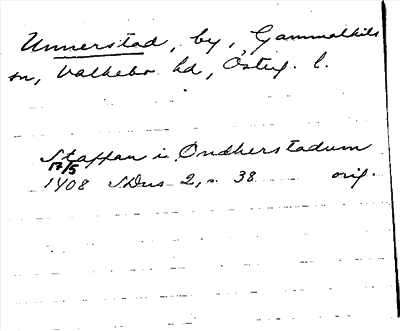 Unnerstad, by, Gammalkils
sn, Valkebo hd, Östg. l.
Staffan i Ondherstadum
17/5
1408 SDns 2, s. 38 orig.